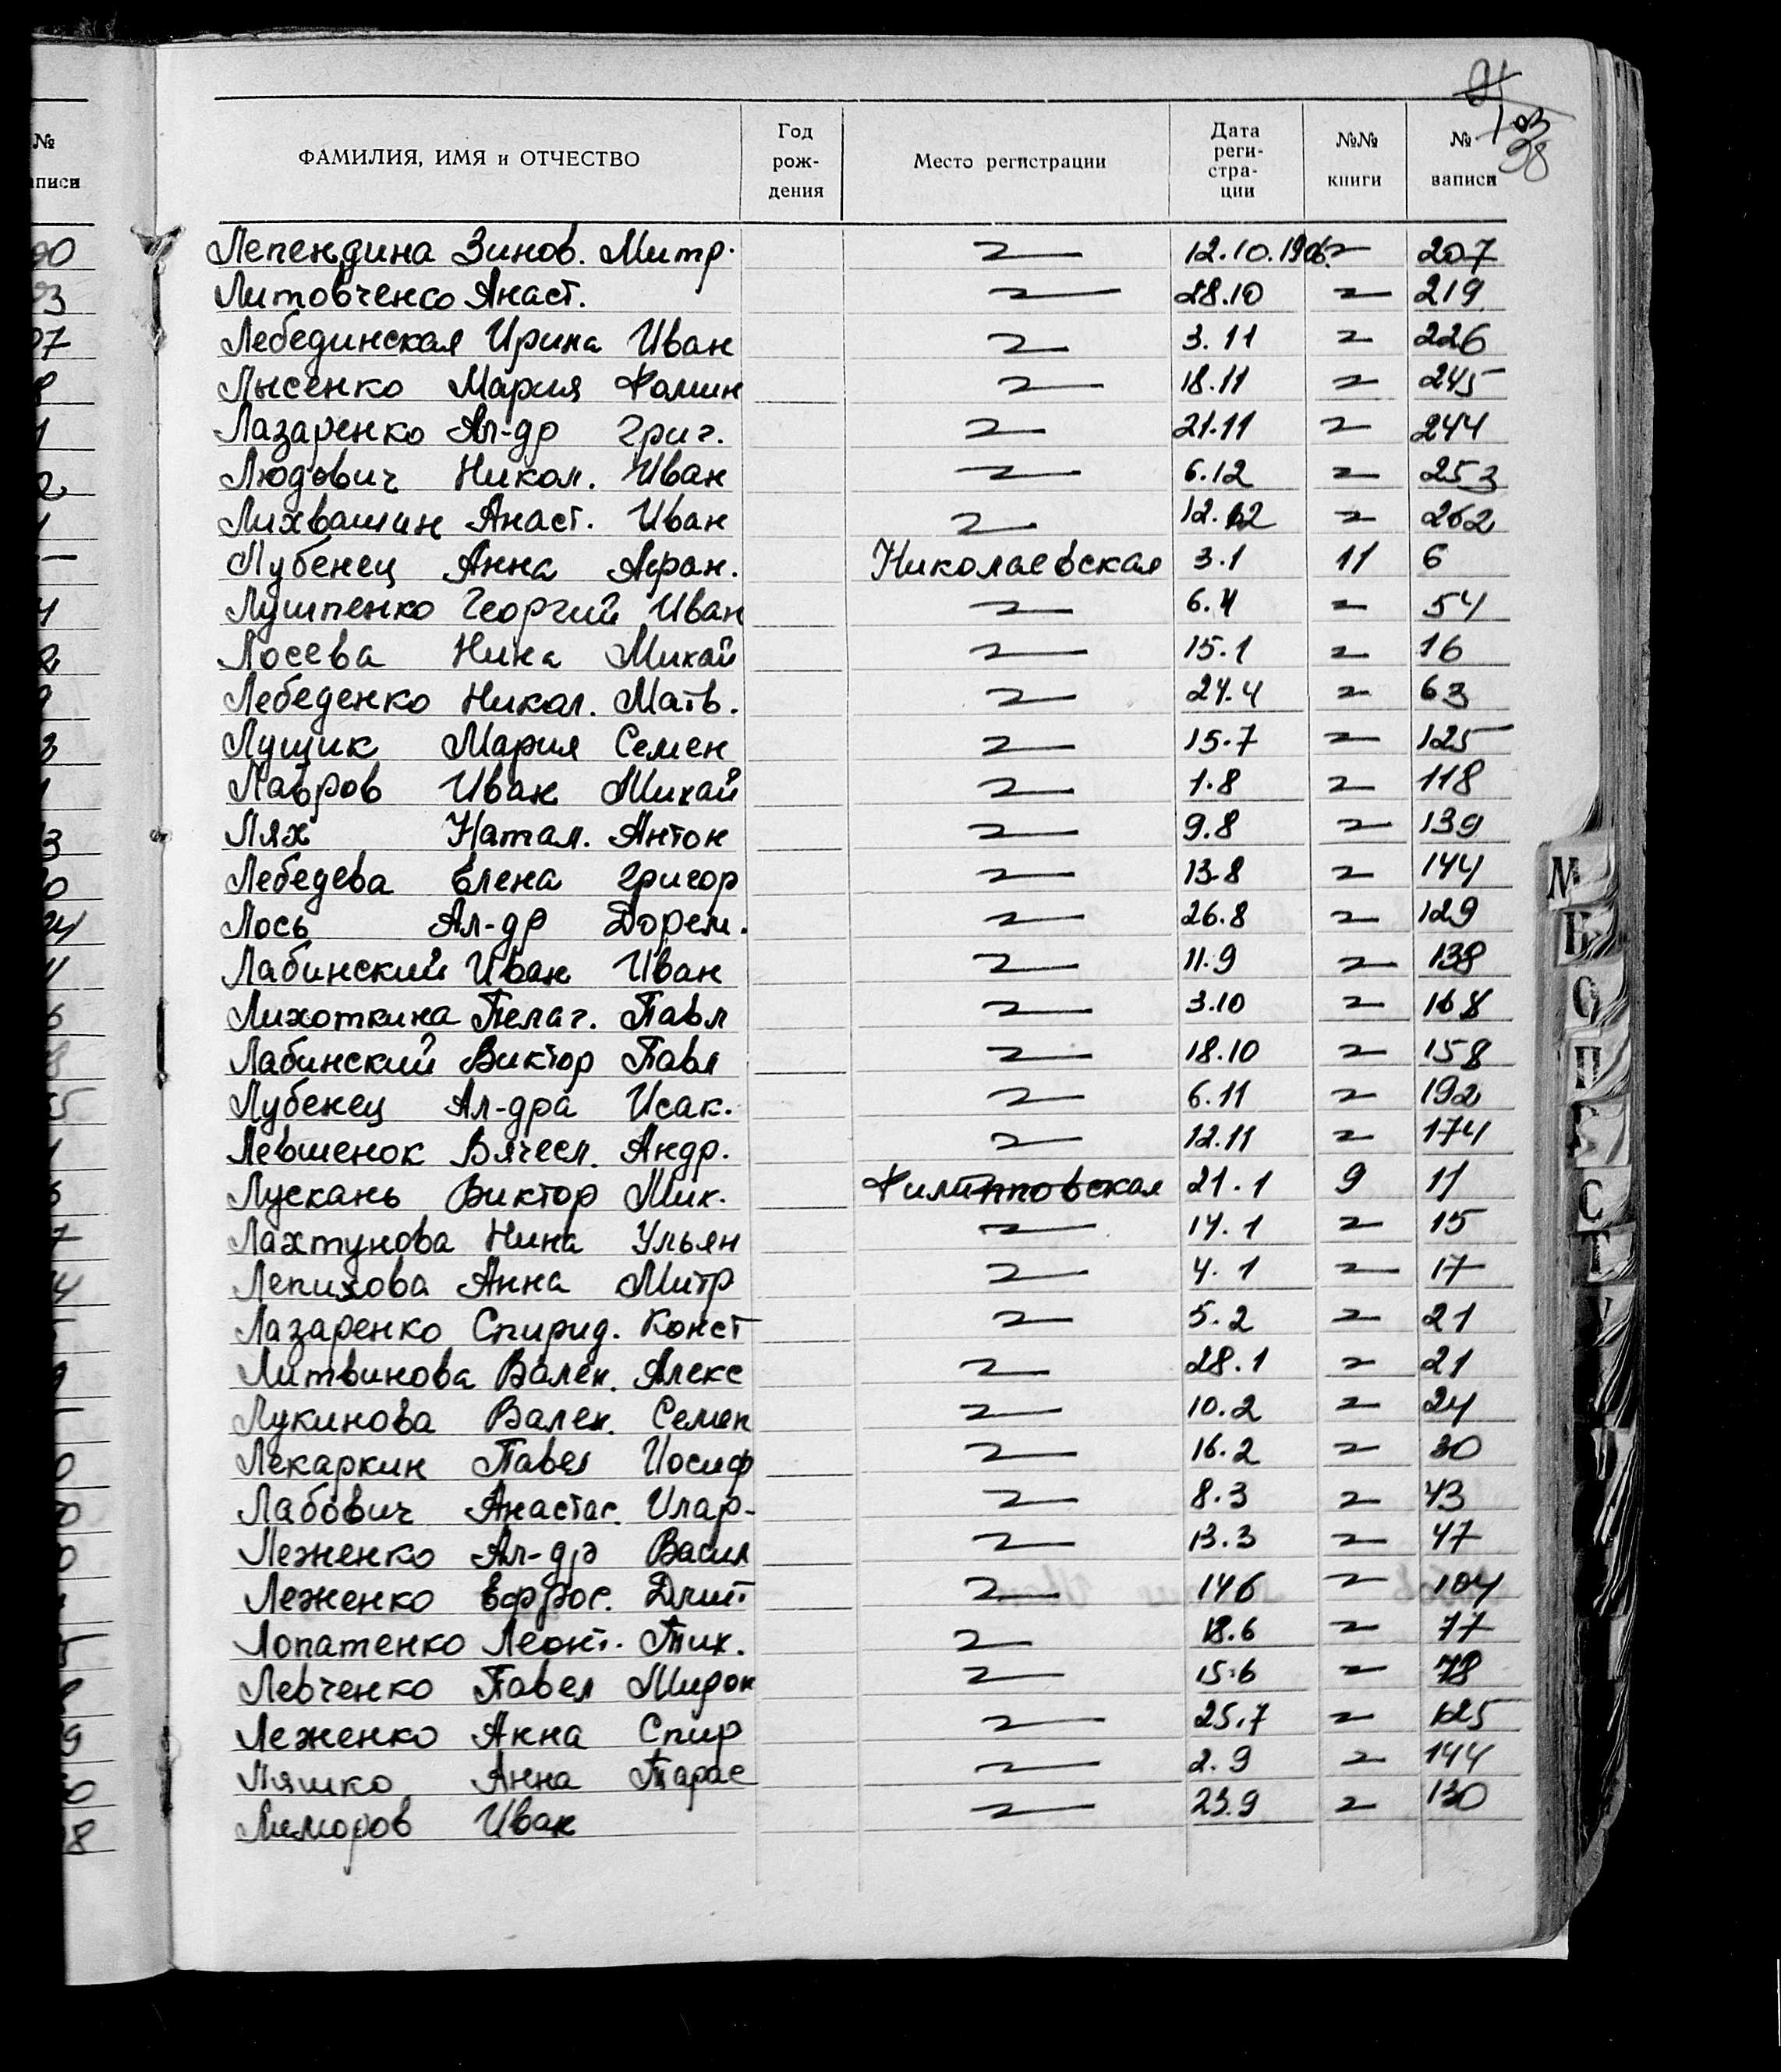 91
103
98
№
записи
ФАМИЛИЯ, ИМЯ и ОТЧЕСТВО
Год рож- дения
Место регистрации
Дата реги- стра- ции
№№ книги
№ записи
Лепендина Зинов. Митр. 12.10.1906. 207
Литовченсо Анаст. 28.10 219
Лебединская Ирина Иван 3.11 226
Лысенко Мария Фомин 18.11 245
Лазаренко Ал-др Григ. 21.11 244
Людович Никол. Иван 6.12 253
Лихвашин Анаст. Иван 12.12 262
Лубенец Анна Афан. Николаевская 3.1 11 6
Лушпенко Георгий Иван 6.4 54
Лосева Нина Михай 15.1 16
Лебеденко Никол. Матв. 24.4 63
Лущик Мария Семен 15.7 125
Лавров Иван Михай 1.8 118
Лях Натал. Антон 9.8 139
Лебедева Елена Григор 13.8 144
Лось Ал-др Дорем. 26.8 129
Лабинский Иван Иван 11.9 138
Лихоткина Пелаг. Павл 3.10 168
Лабинский Виктор Павл 18.10 158
Лубенец Ал-дра Исак. 6.11 192
Левшенок Вячесл. Андр. 12.11 174
Лускань Виктор Мих. Филипповская 21.1 9 11
Лахтунова Нина Ульян 14.1 15
Лепихова Анна Митр 4.1 17
Лазаренко Спирид. Конст 5.2 21
Литвинова Вален. Алекс 28.1 21
Лукинова Вален. Семен 10.2 24
Лекаркин Павел Иосиф 16.2 30
Лабович Анастас. Илар. 8.3 43
Леженко Ал-др Васил 13.3 47
Леженко Ефрос. Дмит 14.6 104
Лопатенко Леонт. Тих. 18.6 77
Левченко Павел Мирон 15.6 78
Леженко Анна Спир 25.7 125
Ляшко Анна Тарас 2.9 144
Лиморов Иван 23.9 130
М
Н
О
П
С
Т
У